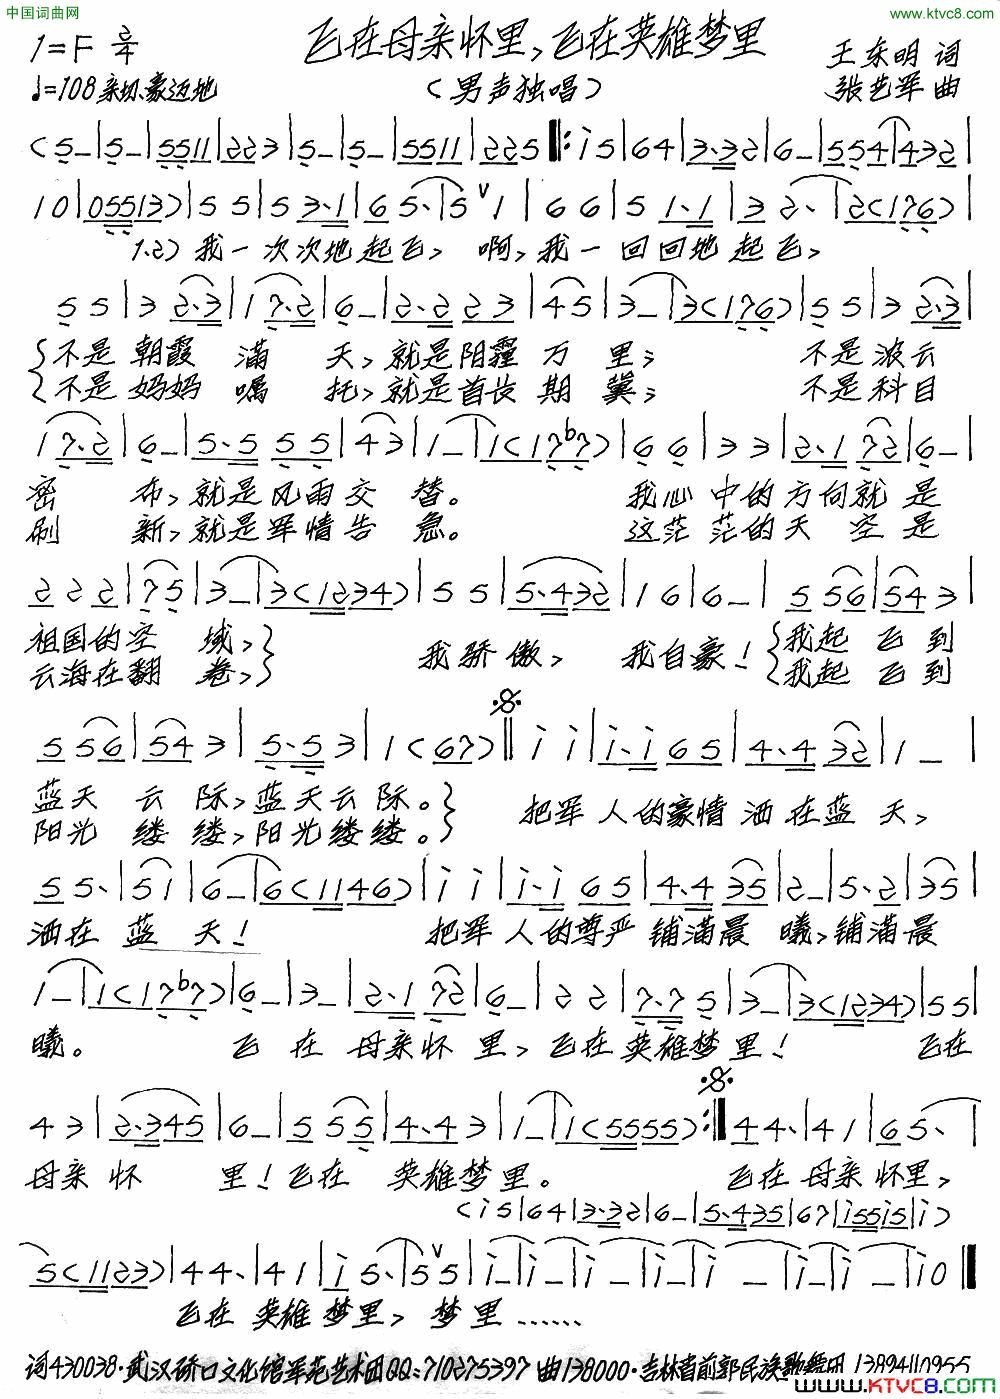 中国词曲网
www.ktvc8.com
飞在母亲怀里,飞在英雄梦里
1=F 2/4
♩=108 亲切、豪迈地
(男声独唱)
王东明 词
张艺军 曲
(5 – | 5 – | 5511 | 223 | 5 – | 5 – | 5511 | 225 ‖: i 5 | 6 4 | 3·32 | 6 – | 554 | 432 |
1 0 | 05513) | 5 5 | 5 3·1 | 6 5· | 5 ∨ 1 | 6 6 | 5 1·1 | 3 2· | 2(176) |
1.2) 我一次次地起飞, 啊,我一回回地起飞,
5 5 | 3 2·3 | 1 7·2 | 6 – | 2·2 2 3 | 4 5 | 3 – | 3(176) | 5 5 | 3 2·3 |
不是朝霞 满 天,就是阴霾 万 里; 不是浓云
不是妈妈 嘱 托,就是首长 期 冀; 不是科目
1 7·2 | 6 – | 5·5 5 5 | 4 3 | 1 – | 1(17♭7) | 6 6 | 3 3 | 2·1 72 | 6 – |
密 布,就是风雨交 替。 我心中的方向就 是
刷 新,就是军情告 急。 这茫茫的天 空 是
2 2 2 | 7 5 | 3 – | 3(1234) | 5 5 | 5·432 | 1 6 | 6 – | 5 56 | 54 3 |
祖国的空 域, 我骄傲, 我自豪! 我起 飞到
云海在翻 卷, 我起 飞到
5 56 | 54 3 | 5·5 3 | 1 (67) ‖ i i | i·i 6 5 | 4·4 32 | 1 – |
蓝天 云 际,蓝天云际。 把军人的豪情洒在蓝 天,
阳光 缕 缕,阳光缕缕。
5 5· | 5 1 | 6 – | 6(1146) | i i | i·i 6 5 | 4·4 35 | 2 – | 5·2 | 35 |
洒在 蓝 天! 把军人的尊严铺满晨 曦,铺满晨
1 – | 1(17♭7) | 6 – | 3 – | 2·1 72 | 6 – | 2 2 | 7·7 5 | 3 – | 3(1234) | 5 5 |
曦。 飞 在 母亲怀 里,飞在英雄梦 里! 飞在
4 3 | 2·345 | 6 – | 5 55 | 4·4 3 | 1 – | 1(5555) :‖ 4 4· | 4 1 | 6 5· – |
母亲怀 里!飞在 英雄梦里。 飞在母亲怀里,
(i 5 | 6 4 | 3·32 | 6 – | 5·435 | 67 | i55i5 | i)
5(1123) | 4 4· | 4 1 | i 5· | 5 ∨ 5 | i – | i – | i – | i – | i – | i – | i 0 ‖
飞在 英雄梦里,梦里……
词430038·武汉硚口文化馆军苑艺术团QQ:710275397 曲138000·吉林省前郭民族歌舞团 13894110955
www.KTVC8.com